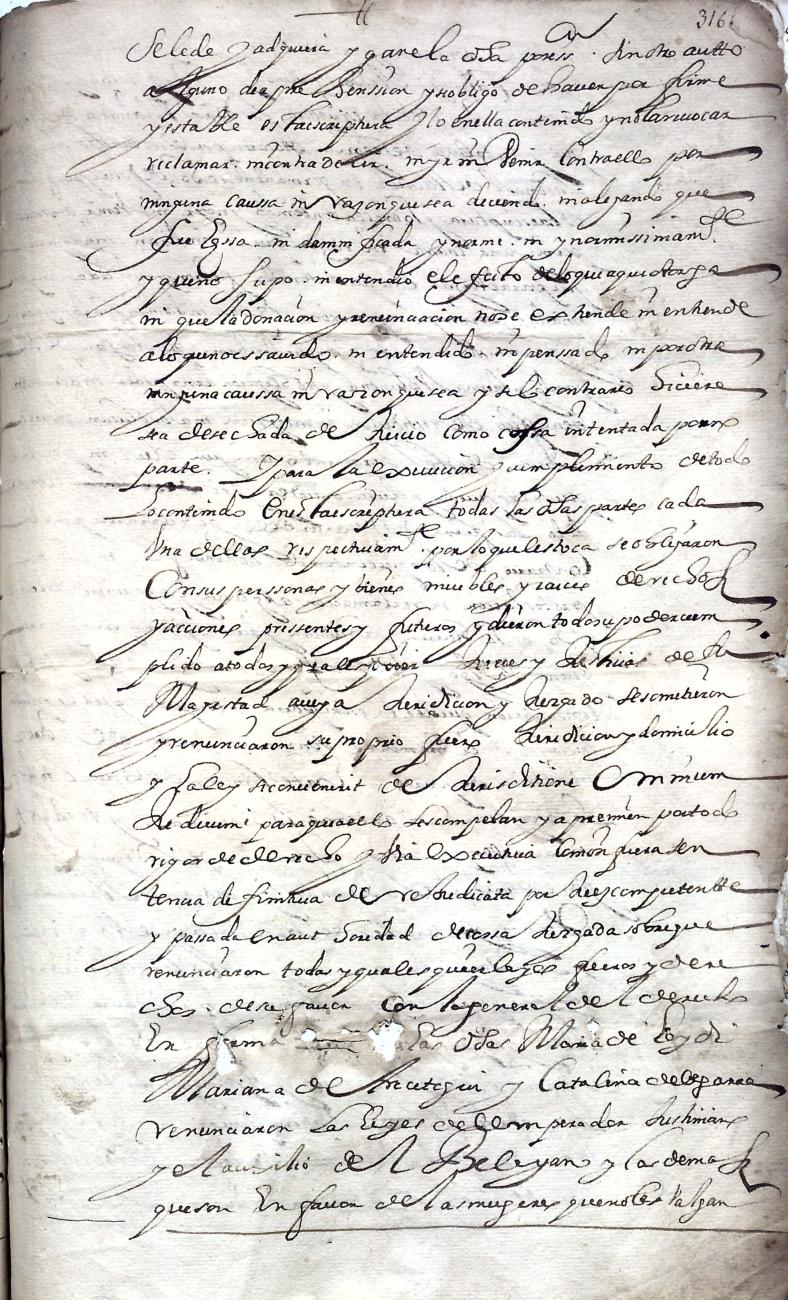 316
se le de y adquiera y gane la dha poss.on sin otro autto
alguno de apre henssion y se obligo de haver por firme
y estable esta escriptura y lo en ella contenido y no la revocar
reclamar ni contra decir ni yr ni Venir Contra ello por
ninguna caussa ni razon que sea diciendo ni alegando que
fue lessa ni damnificada ynorme ni ynormissimam.te
y que no supo ni entendio el efeito de lo que aqui otorga
ni que la donacion y renunciacion no se extiende ni entiende
a lo que no es savido ni entendido ni penssado ni por otra
ninguna caussa ni razon que sea y si lo contrario hiciere
sea desechada de Juicio como cossa intentada por
parte. Y para la execucion y cumplimiento de todo
lo contenido en esta escriptura todas las dhas partes cada
Una de ellas respectivam.te por lo que les toca se obligaron
Con sus perssonas y bienes muebles y raices derechos
y acciones pressentes y futuros y dieron todo su poder cum
plido a todos y quales quier Jueces y Justicias de su
Magestad a cuya Juridicion y Juzgado se sometieron
y renunciaron su proprio fuero Juridicion y domicilio
y la ley si convenerit de Jurisditione Omnium
Judicum para que a ello les compelan y apremien por todo
rigor de derecho y Via executiva como si fuera sen
tencia difinitiva de Juez competentte
y passada en aut horidad de cossa Juzgada sobre que
renunciaron todas y quales quier leyes fueros y dere
chos de su favor Con la general del derecho
En forma las dhas Maria de Loydi
Mariana de Arrutegui y Catalina de
renunciaron las leyes del Emperador Justiniano
y el auxilio del Beleyano y las demas
que son En favor de las mugeres que no les Valgan